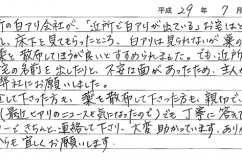 平成 29 年 7 月
所の白アリ会社が、「近所で白アリが出ている」お宅は
、床下を見てもらったところ、白アリは見られないが薬の
を散布してほうが良いとすすめられました。でも、近所
宅の名前を出したりと、不安な面があったため、主人
弊社にお願いしました。
査して下さった方も、薬を散布して下さった方も、親切で、
(最近ヒアリのニュースを気になったので)でも丁寧に答えて
で、きちんと連絡して下さり、大変助かっています。あり
からも宜しくお願いします。